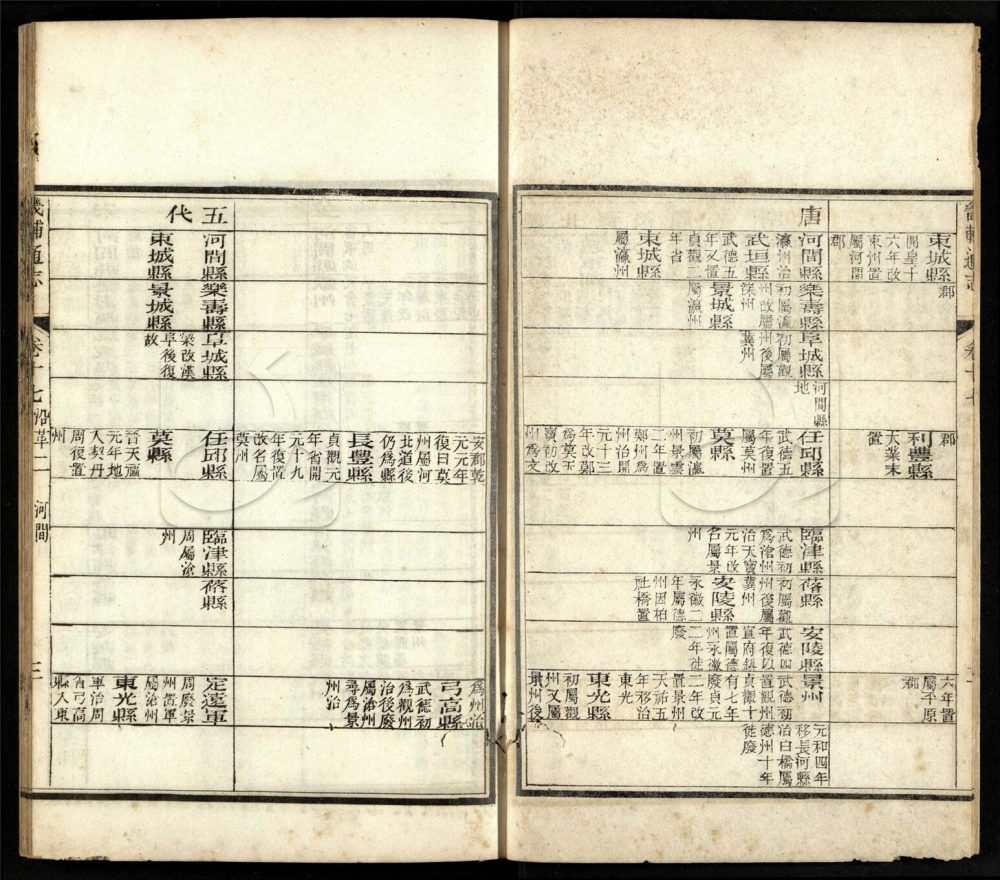 畿輔通志
卷十七
東城縣
開皇十
六年改
束州置
屬河間
郡
郡
郡
利豐縣
大業末
置
六年置
屬平原
郡
唐
河間縣
瀛州治
武垣縣
武德五
年又置
貞觀二
年省
東城縣
屬瀛州
樂壽縣
初屬瀛
州改屬
深州
景城縣
屬瀛州
阜城縣
初屬觀
州後屬
冀州
河間縣
地
任邱縣
武德五
年復置
屬莫州
莫縣
初屬瀛
州景雲
二年置
鄚州為
州治開
元十三
年改鄚
為莫天
寶初改
州為文
臨津縣
武德初
為滄州
治天寶
元年改
名屬景
州
蓨縣
初屬觀
州後屬
冀州
安陵縣
永徽二
年屬德
州因柏
社橋置
安陵縣
武德四
年復以
宣府鎮
置屬德
州永徽
二年徙
廢
景州
武德初
置觀州
貞觀十
有七年
廢貞元
二年改
置景州
天祐五
年移治
東光
東光縣
初屬觀
州又屬
景州後
元和四年
移長河縣
治白橋屬
德州十年
徙廢
安郡乾
元元年
復曰莫
州屬河
北道後
仍為縣
長豐縣
貞觀元
年省開
元十九
年復置
改名屬
莫州
為州治
弓高縣
武德初
為觀州
治後廢
屬滄州
尋為景
州治
五代
河間縣
東城縣
樂壽縣
景城縣
阜城縣
梁改漢
阜後復
故
任邱縣
莫縣
晉天福
元年地
入契丹
周復置
州
臨津縣
周屬滄
州
蓨縣
定遠軍
周廢景
州置軍
屬滄州
東光縣
軍治周
省弓高
縣入東
畿輔通志
卷十七 沿革二 河間
三